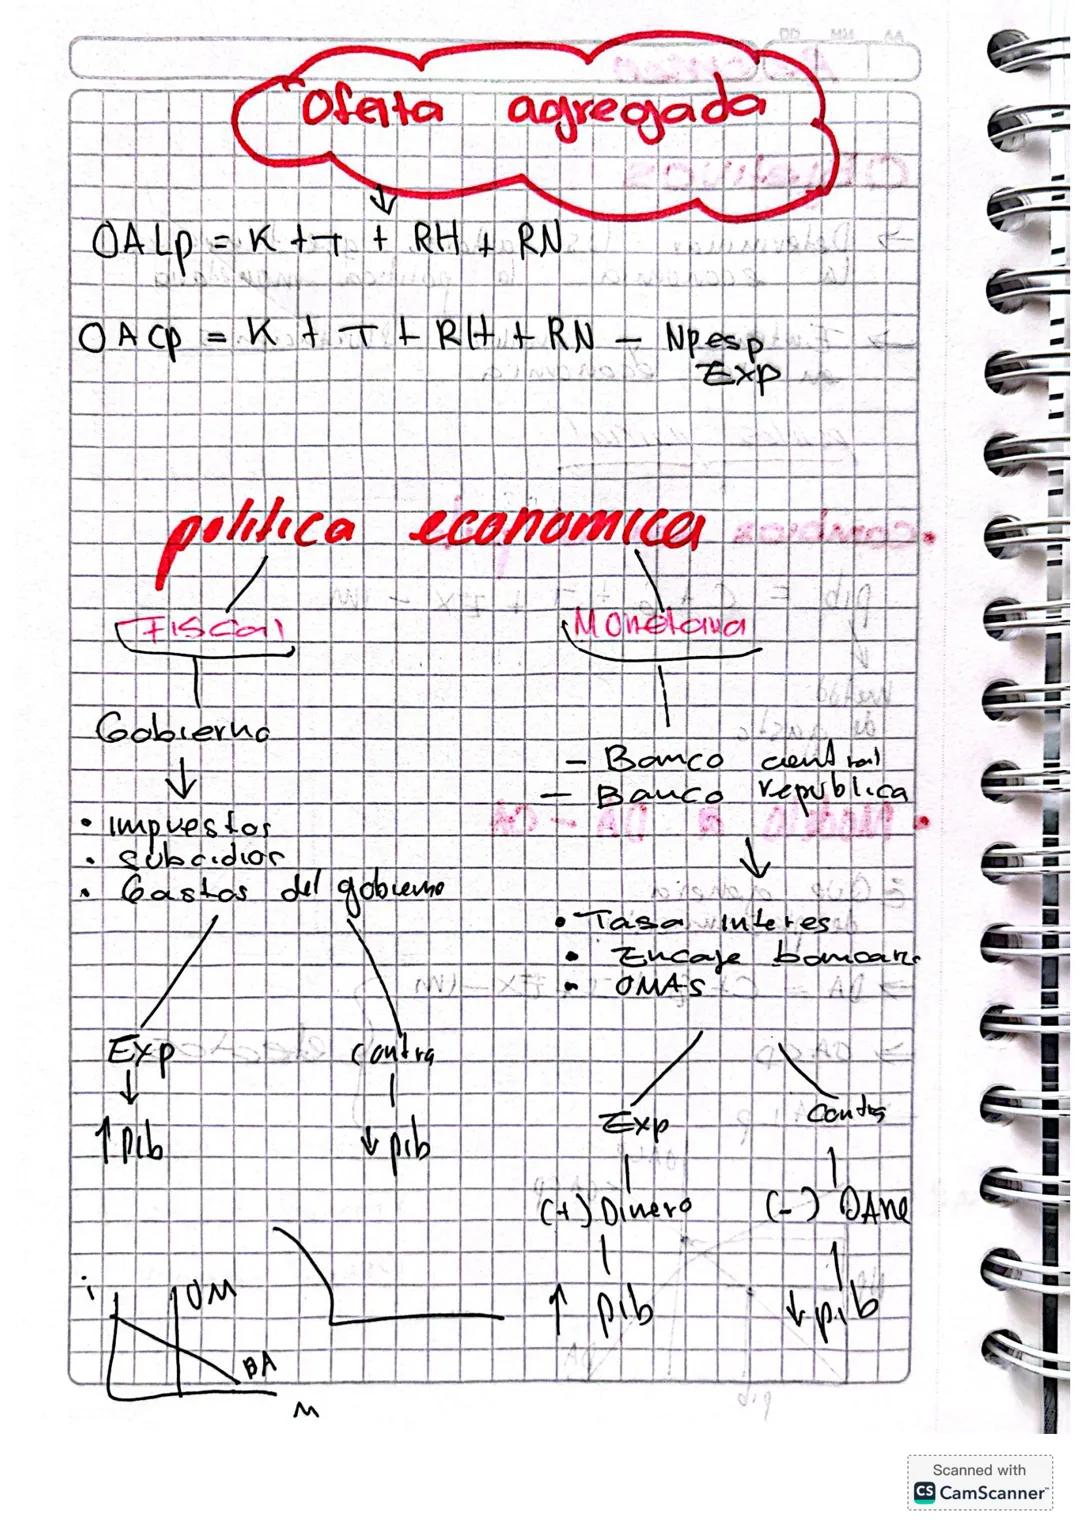 Oferta agregada
OALp = K + T + RH + RN
OACp = K + T + RH + RN - Npesp
Exp
politica economica
Fiscal
Monetaria
Gobierno
- Banco central
- Banco republica
• impuestos
• subcidios
• Gastos del gobierno
• Tasa interes
• Encaje bancari
• OMAS
Exp
contra
Exp
contra
↑ pib
↓ pib
(+) Dinero
(-) DANe
↑ pib
↓ pib
i
OM
BA
M
Scanned with
CS CamScanner